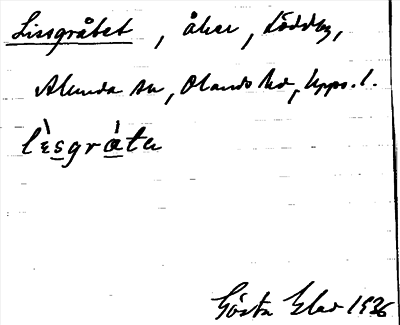 Lissgråtet, åker, Löddby,
Alunda sn, Olands hd, Upps. l.
lɛ̀sgrátu
Gösta Eles 1936